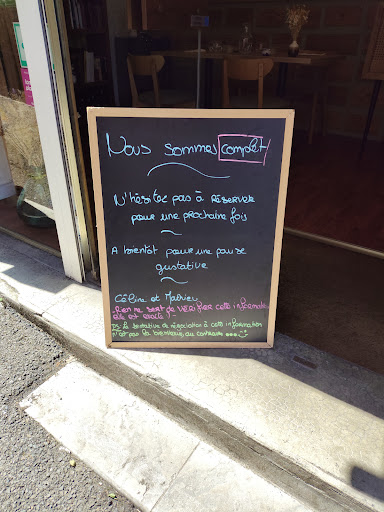 Nous sommes complet
N'hésitez pas à RÉSERVER
pour une prochaine fois
A bientôt pour une pause
gustative
Céline et Mathieu
Rien ne sert de VÉRIFIER cette information
elle est exacte !
PS: la tentative de négociation à cette information
n'est pas la bienvenue, au contraire ...